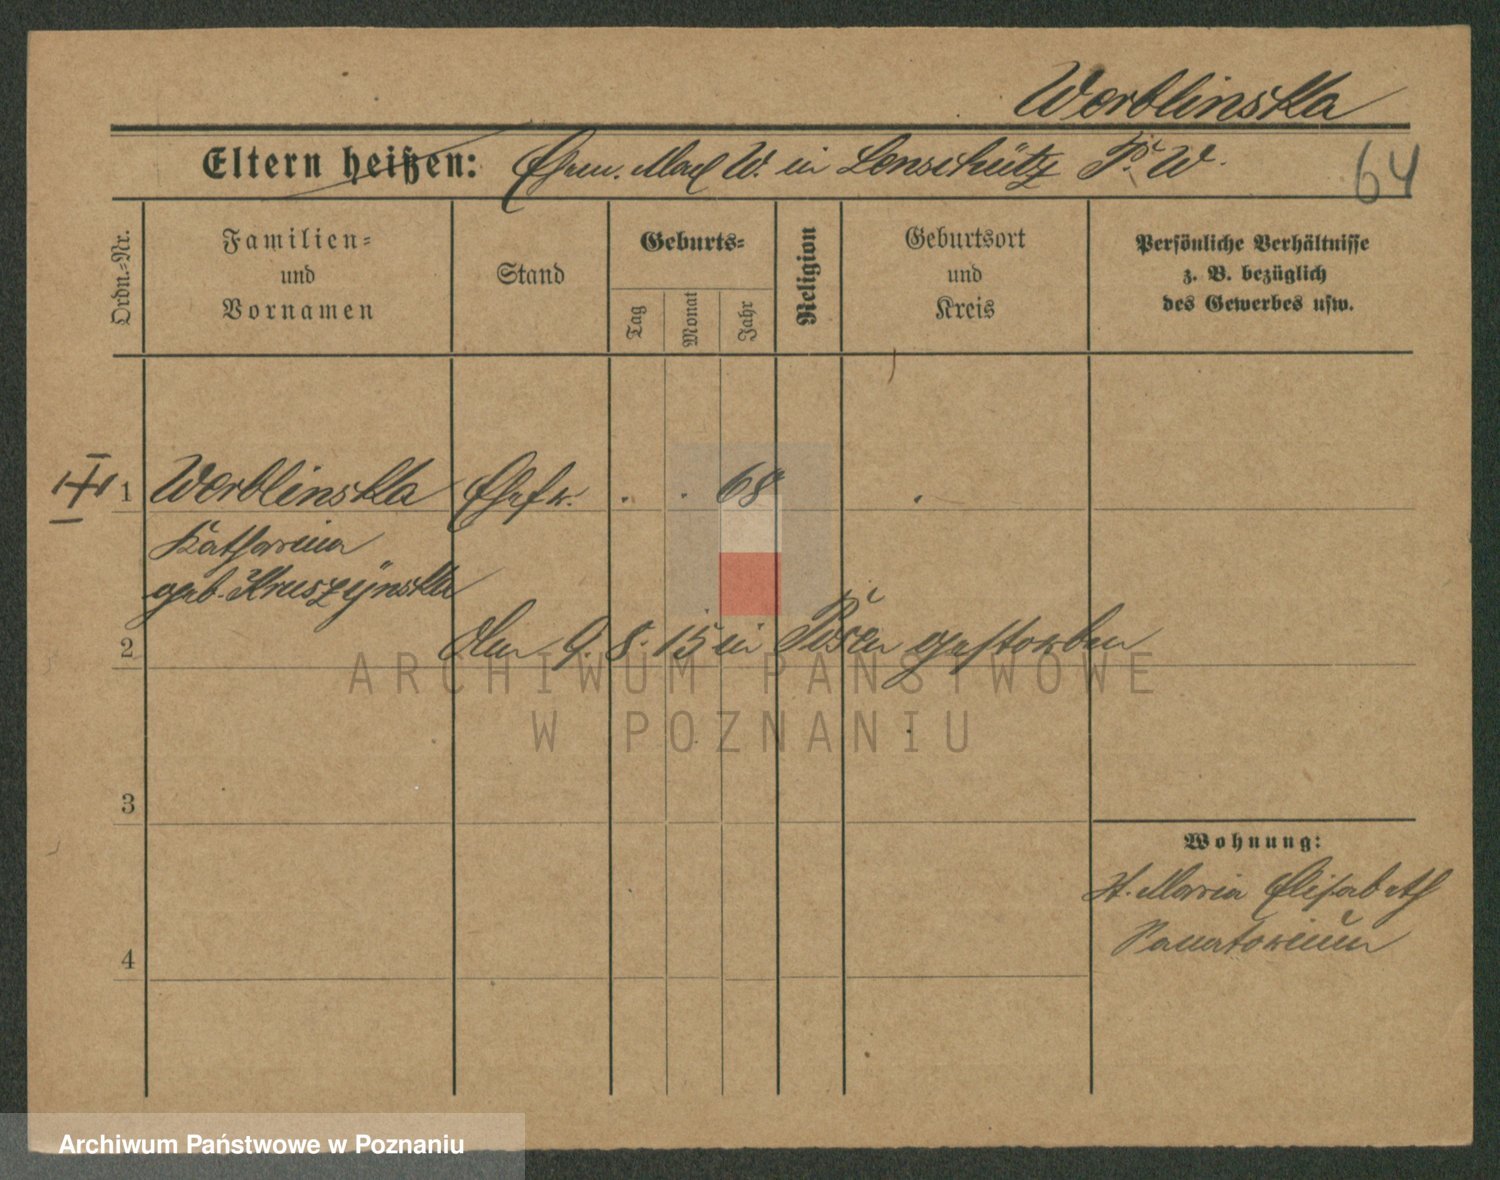 Werblinska
Eltern heißen: Ehem. W. in Lenschütz W.
64
Ordn.-Nr.
Familien-
und
Vornamen
Stand
Geburts-
Tag
Monat
Jahr
Religion
Geburtsort
und
Kreis
Persönliche Verhältnisse
z. B. bezüglich
des Gewerbes usw.
1 Werblinska Ehefr. . . 68 .
Katharina
geb. Kruszÿnska
2 den 9. 8. 15 in Posen gestorben
ARCHIWUM PAŃSTWOWE
W POZNANIU
3
Wohnung:
St. Maria Elisabeth
Sanatorium
4
Archiwum Państwowe w Poznaniu